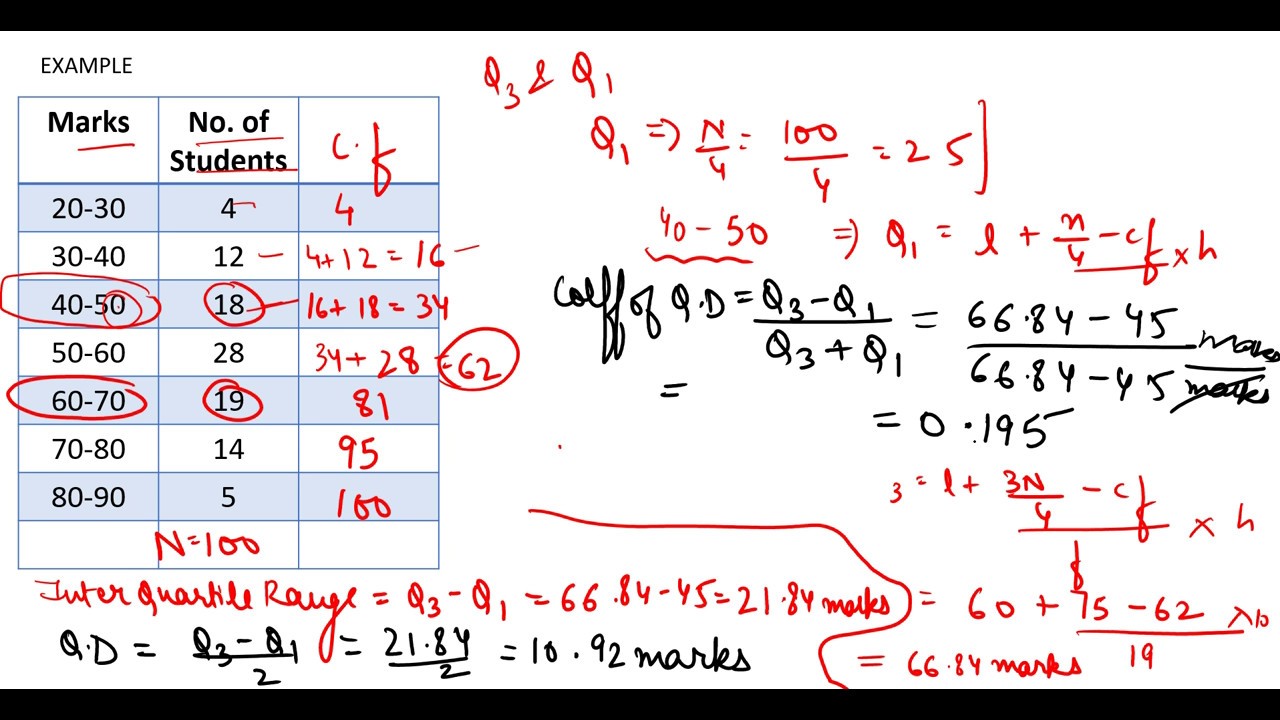 EXAMPLE
Marks No. of Students C.f
20-30 4 4
30-40 12 4+12=16
40-50 18 16+18=34
50-60 28 34+28=62
60-70 19 81
70-80 14 95
80-90 5 100
N=100
Q3 & Q1
Q1 ⇒ N/4 = 100/4 = 25]
40-50 ⇒ Q1 = l + n/4 - cf × h
Coeff of Q.D = Q3-Q1 / Q3+Q1 = 66.84-45 marks / 66.84-45 marks
=
= 0.195
3 = l + 3N/4 - cf / f × h
= 60 + 75-62 / 19 × 10
= 66.84 marks
Inter Quartile Range = Q3-Q1 = 66.84-45 = 21.84 marks
Q.D = Q3-Q1 / 2 = 21.84 / 2 = 10.92 marks